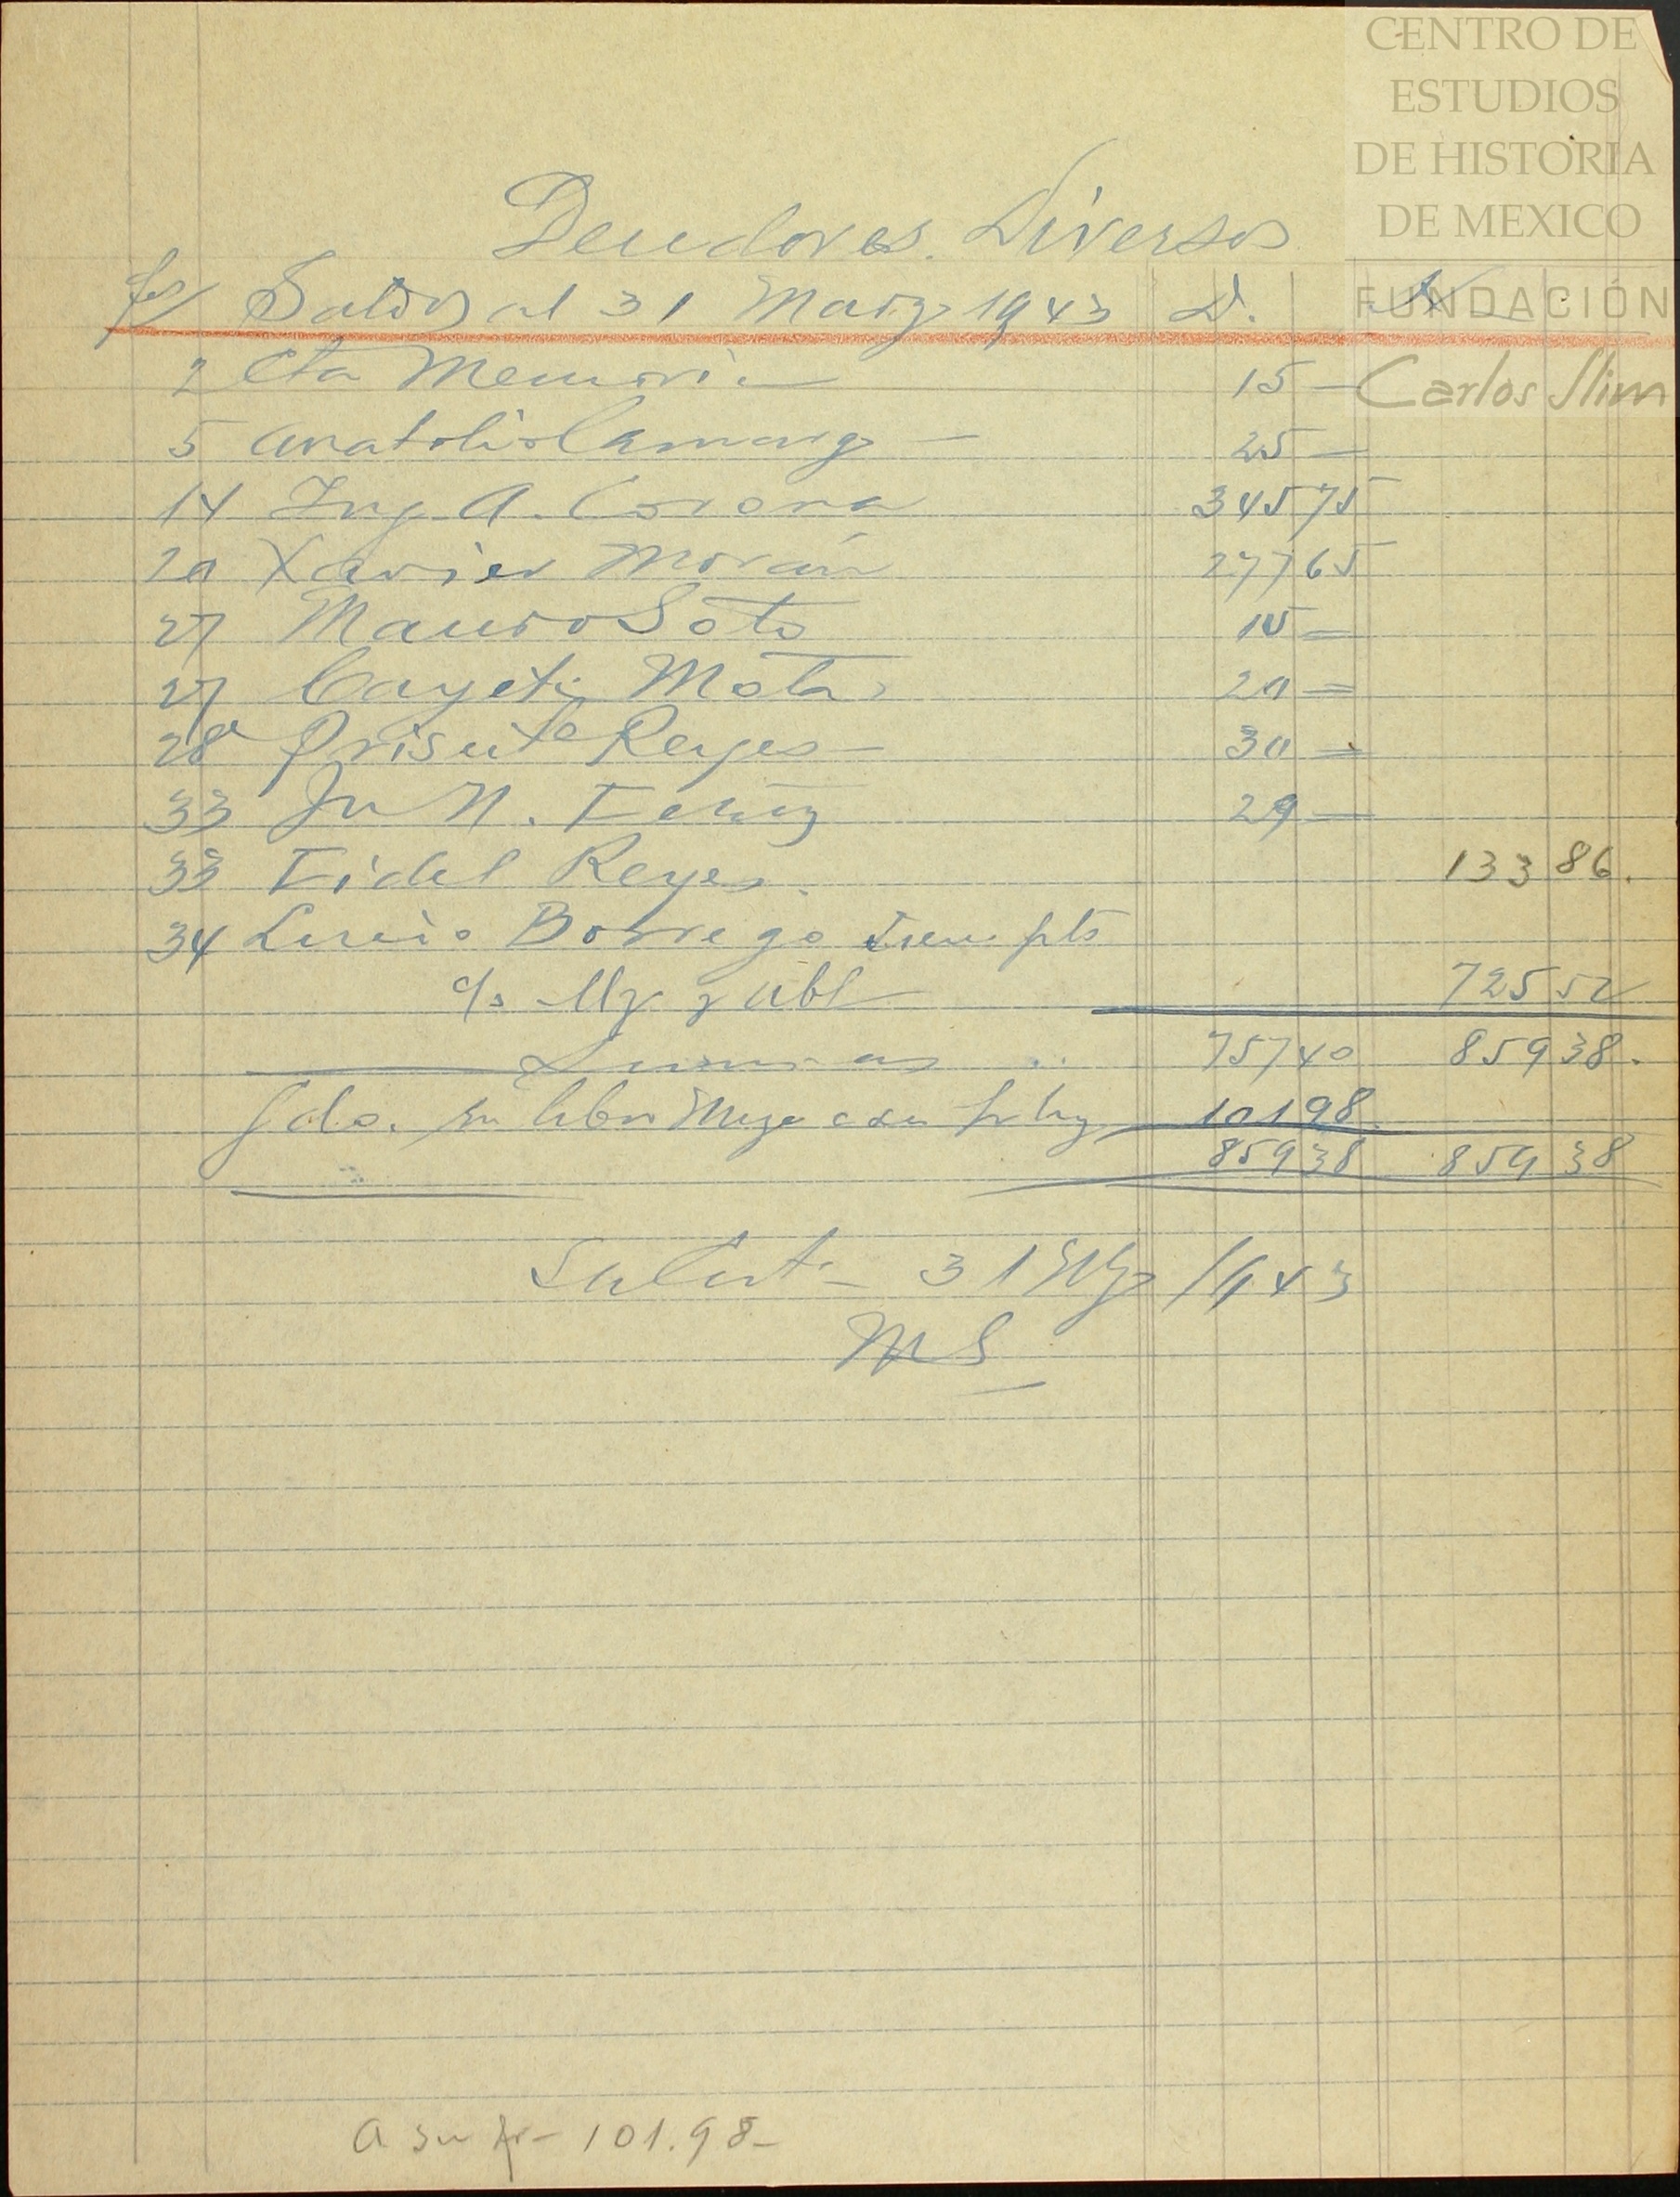 CENTRO DE
ESTUDIOS
DE HISTORIA
DE MEXICO
FUNDACIÓN
Carlos Slim
Deudores Diversos
fs/ Saldos al 31 Marzo 1943 D.
2 Cta Memoria 15 —
5 Anatolio Camargo — 25 —
14 Ing. A. Corona 345 75
20 Xavier Morán 277 65
27 Mauro Soto 15 =
27 Cayet. Mota 20 =
28 Reyes — 30 =
33 N. 29 —
33 Fidel Reyes. 133 86.
34 Lucio Borrego
725 52
Sumas .. 757 40 859 38.
101 98.
859 38 859 38
31 1943
MS
a su fr— 101.98—